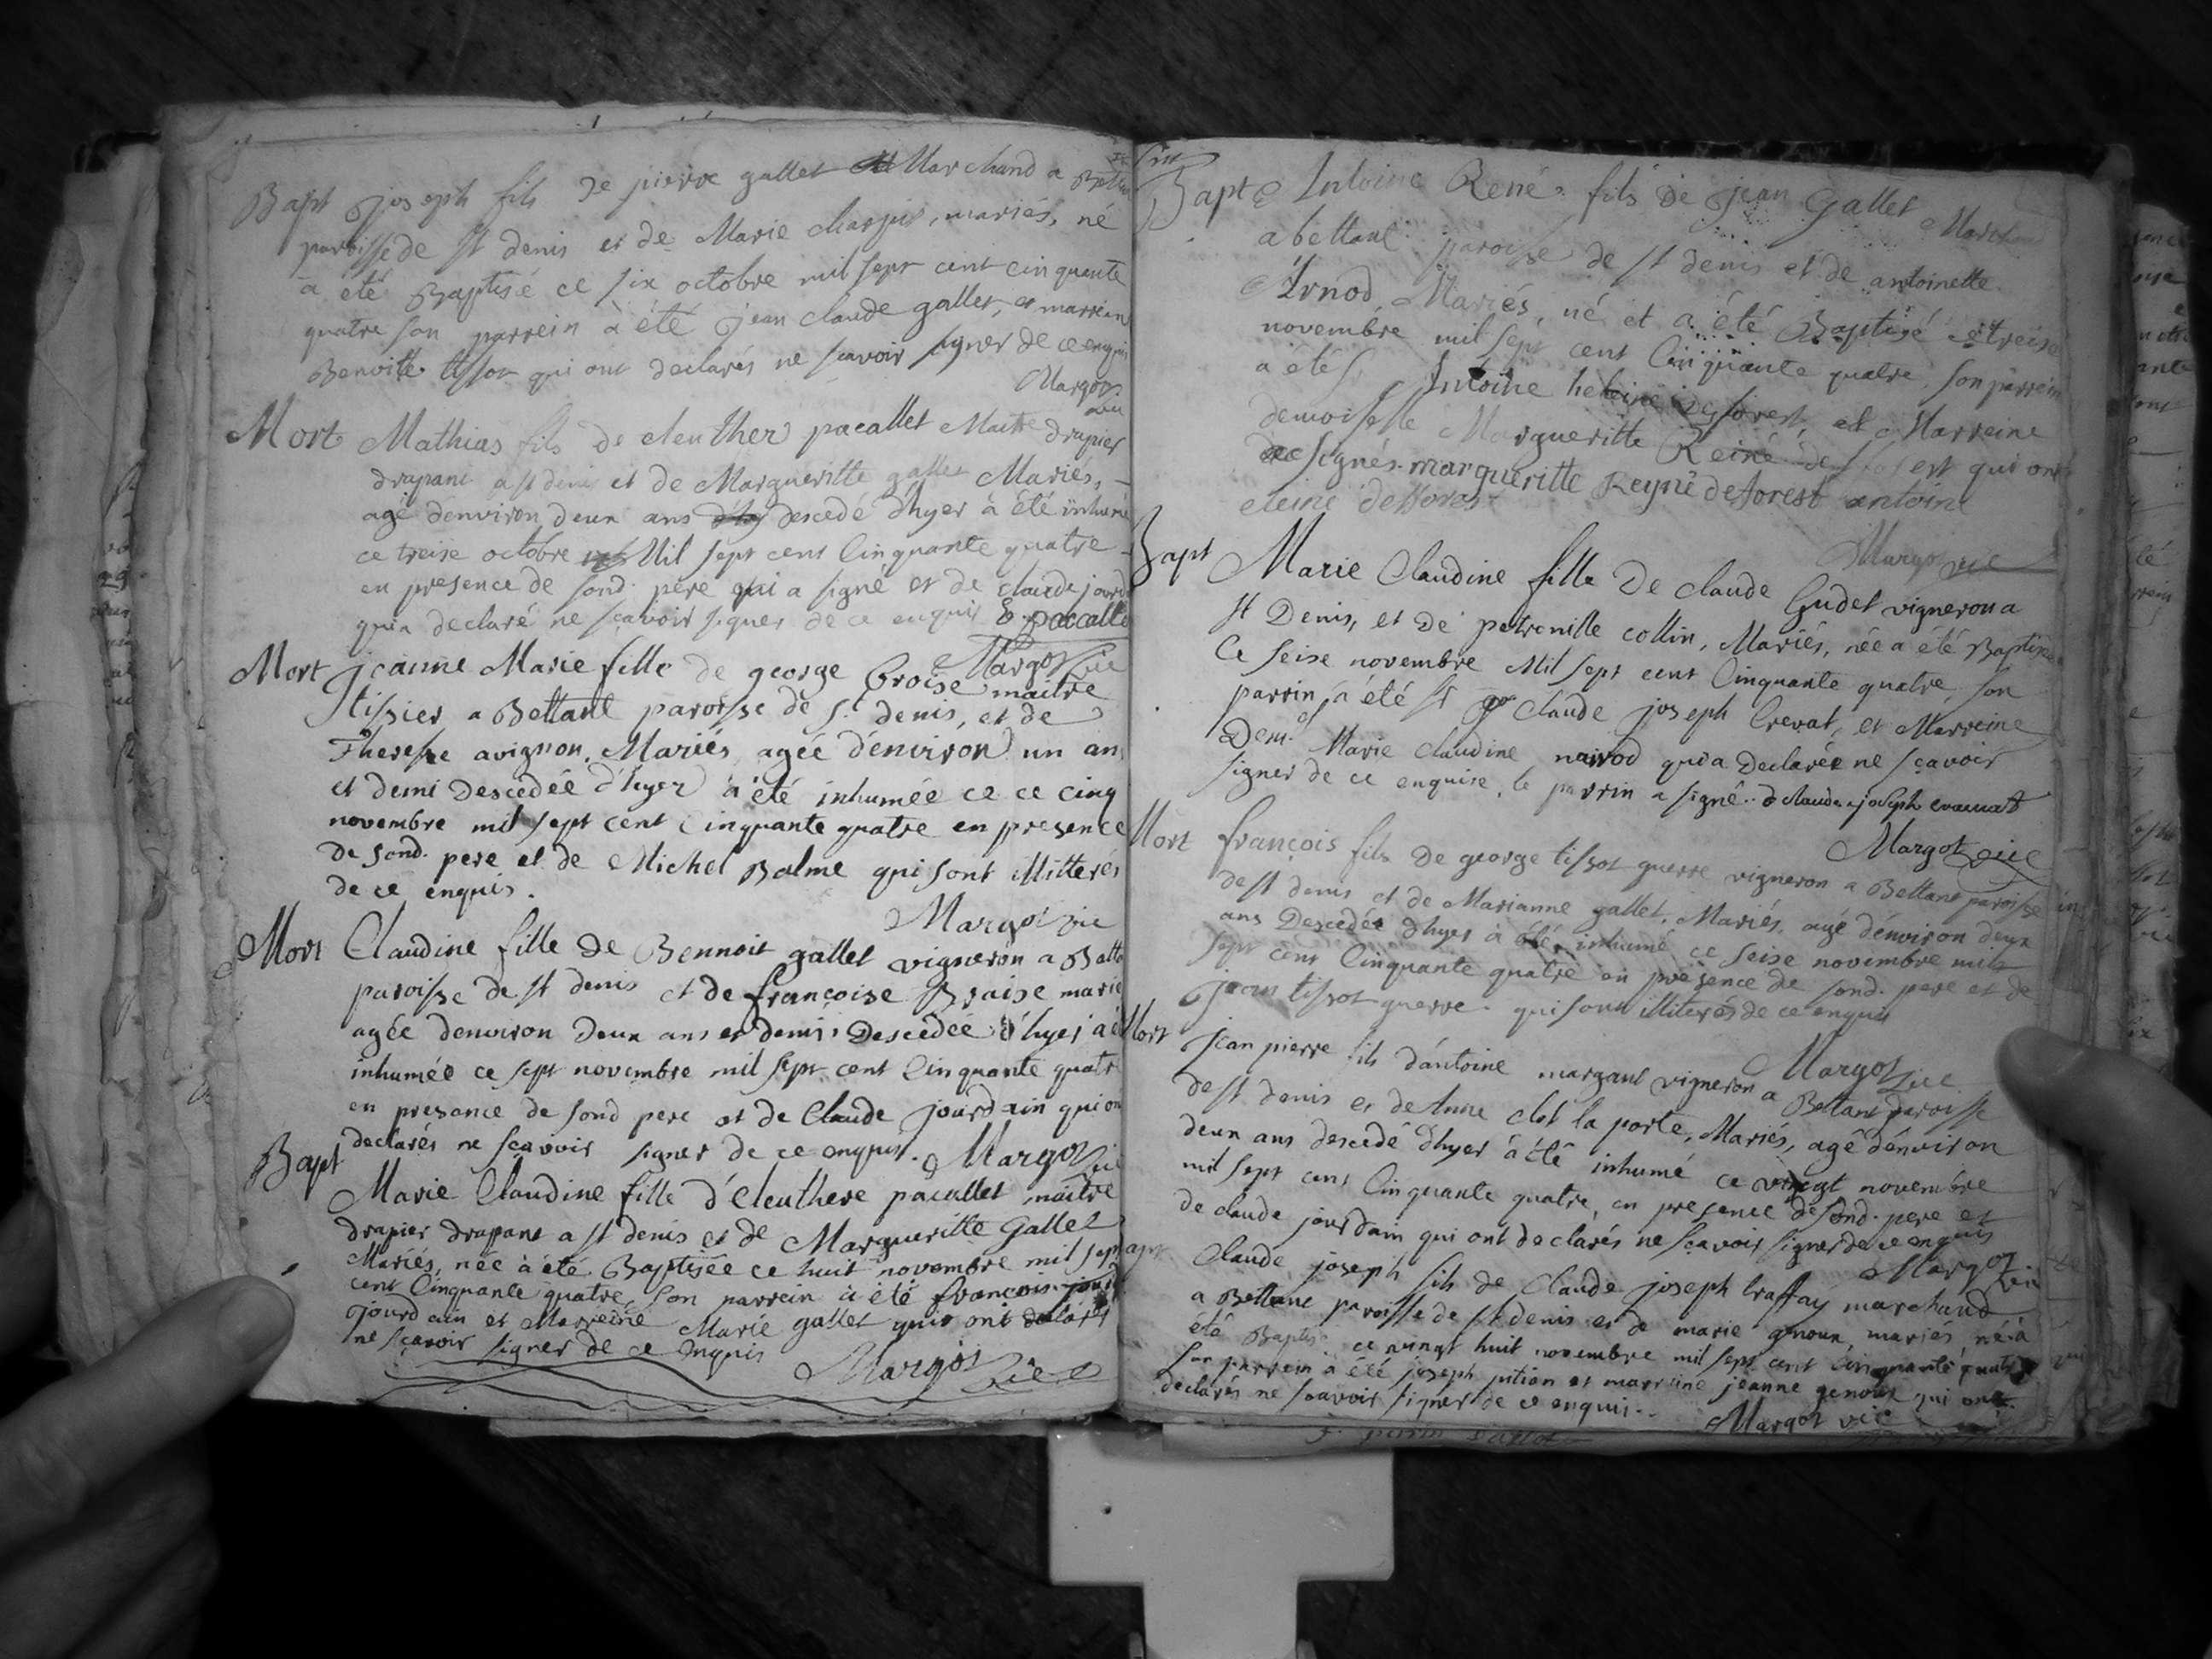 Bapt joseph fils De pierre gallet Marchand a
paroisse de st denis et de Marie charpui, mariés, né
a été Baptisé ce six octobre mil sept cent cinquante
quatre son parrein à été jean claude gallet, et marrein
Benoitte tissot qui ont declarés ne scavoir signer de ce enquis
Margot
vic
Mort Mathias fils de eleuther pacallet Maitre drapier
drapant a st denis et de Margueritte gallet Mariés,
agé denviron deux ans descedé d'hyer à été inhumé
ce treise octobre Mil sept cent Cinquante quatre
en presence de sond. pere qui a signé et de claude jourd
qui a declaré ne sçavoir signer de ce enquis E. pacalle
Margot vic
Mort jeanne Marie fille de george Croise maitre
tissier a Bettant paroisse de st. denis, et de
Theresse avignon, Mariés, agée d'environ un an
et demi Descedée d'hyer à été inhumée ce ce cinq
novembre mil sept cent Cinquante quatre en presence
De sond. pere et de Michel Balme qui sont illitterés
de ce enquis.
Margot vic
Mort Claudine fille de Bennoit gallet vigneron a Batta
paroisse de st denis et de françoise Braise marie
agée denviron deux ans et demis Descedée d'hyer a é
inhumée ce sept novembre mil sept cent Cinquante quatr
en presance de sond pere et de Claude jourdain qui on
declarés ne sçavoir signer de ce enquis. Margot vic
Bapt Marie Claudine fille d'eleuthere pacallet maitre
drapier drapant a st denis et de Margueritte Gallet
Mariés, née à été Baptisée ce huit novembre mil sept
cent Cinquante quatre, son parrein à été françois jourd
jourdain et Marreine Marie gallet qui ont
ne sçavoir signer de ce enquis
Margot vic
Bapt Antoine René fils de jean Gallet March
a bettant paroisse de st denis et de antoinette
Arnod, Mariés, né et a été Baptisé ce treise
novembre mil sept cent Cinquante quatre, son parrein
a été s. Antoine heleine desforest, et Marreine
demoiselle Margueritte Reine desforest qui ont
signés. margueritte Reyne deforest antoine
eleine desforest
Margot vic
Bapt Marie Claudine fille De claude Gudet vigneron a
st Denis, et De petronille collin, Mariés, née a été Baptisée
Ce seise novembre Mil sept cent Cinquante quatre son
parrin à été sr claude joseph Crevat, et Marreine
Dem. Marie Claudine nairod qui a Declarée ne sçavoir
signer de ce enquise, le parrin a signé. claude joseph
Margot vic
Mort françois fils De george tissot guerre vigneron a Bettant paroisse
de st denis et de Marianne gallet, Mariés, agé denviron deux
ans Descedés d'hyer à été inhumé ce seise novembre mil
sept cent Cinquante quatre en presence de sond. pere et de
jean tissot guerre. qui sont illiterés de ce enquis
Margot vic
Mort jean pierre fils d'antoine margant vigneron a Bettant paroisse
de st denis et de Anne clet la porte, Mariés, agé denviron
deux ans descedé d'hyer à été inhumé ce vingt novembre
mil sept cent Cinquante quatre, en presence de sond. pere et
de claude jourdain qui ont declarés ne sçavoir signer de ce enquis
Margot vic
apt Claude joseph fils de Claude joseph traffay marchand
a Bettant paroisse de st denis et de marie genoux, mariés, né à
été Baptisé ce vingt huit novembre mil sept cent cinquante quatre
son parrein à été joseph pitian et marreine jeanne genoux qui ont
declarés ne sçavoir signer de ce enquis.
Margot vic